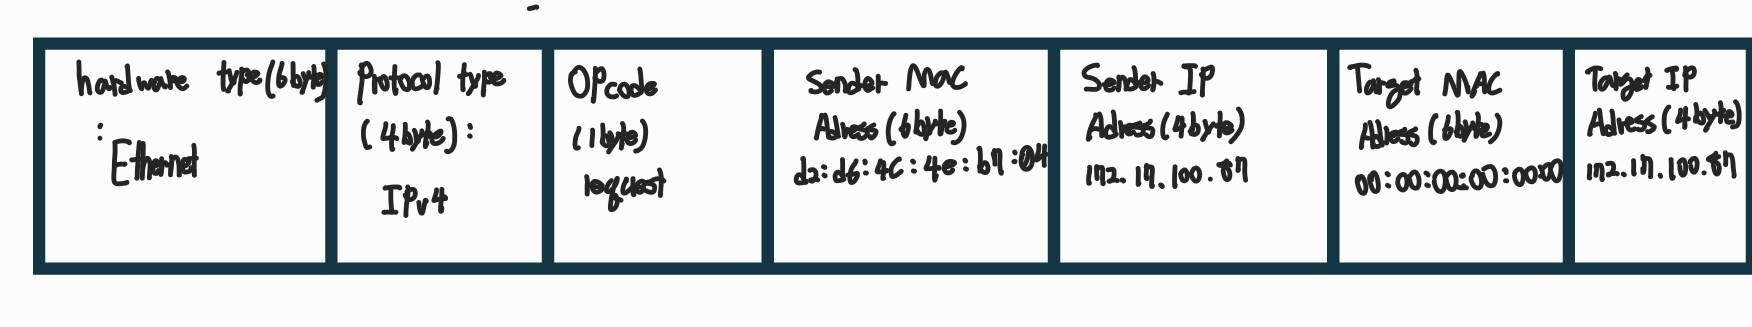 hardware type(6byte)
:
Ethernet
Protocol type
(4byte):
IPv4
OPcode
(1byte)
request
Sender MAC
Adress (6byte)
d2:d6:4C:4e:b7:04
Sender IP
Adress (4byte)
172.17.100.87
Target MAC
Adress (6byte)
00:00:00:00:00:00
Target IP
Adress (4byte)
172.17.100.87